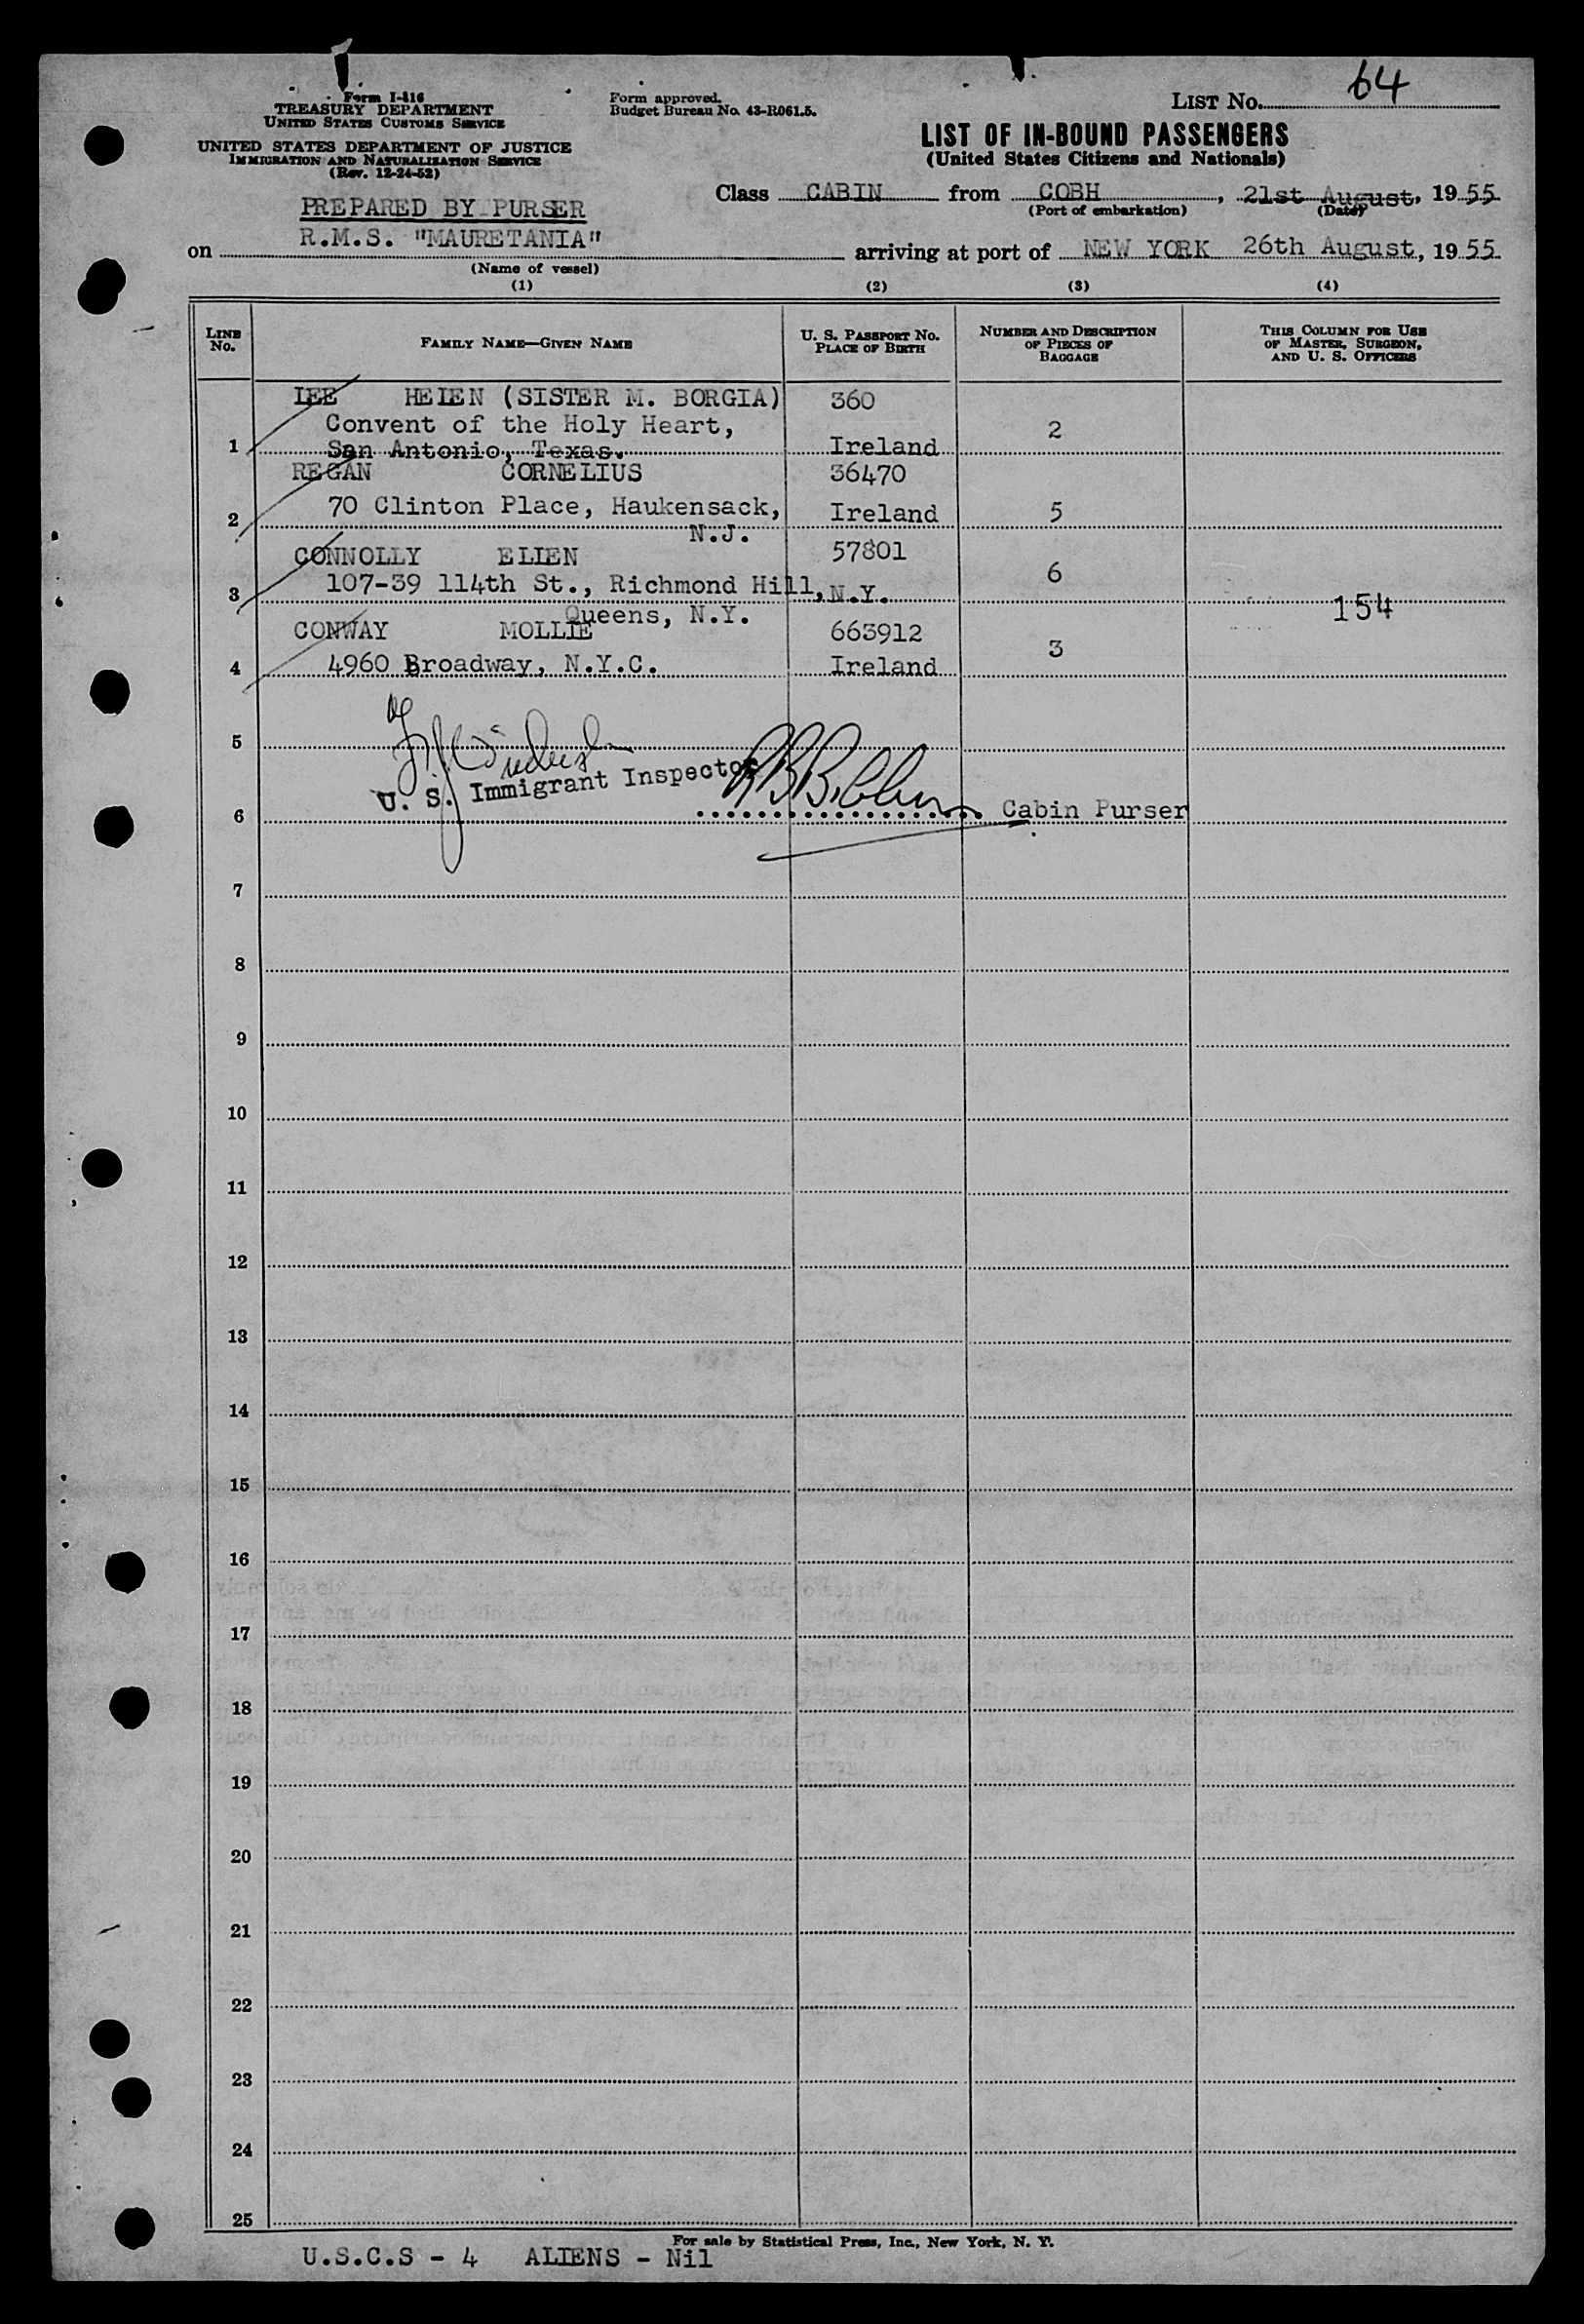 64
Form I-416
TREASURY DEPARTMENT
UNITED STATES CUSTOMS SERVICE
UNITED STATES DEPARTMENT OF JUSTICE
IMMIGRATION AND NATURALIZATION SERVICE
(Rev. 12-24-52)
Form approved.
Budget Bureau No. 43-R061.5.
LIST No.
LIST OF IN-BOUND PASSENGERS
(United States Citizens and Nationals)
Class CABIN from COBH, 21st August, 19 55
(Port of embarkation) (Date)
PREPARED BY PURSER
on R.M.S. "MAURETANIA" arriving at port of NEW YORK 26th August, 19 55
(Name of vessel)
(1) (2) (3) (4)
LINE No. FAMILY NAME—GIVEN NAME U. S. PASSPORT No. PLACE OF BIRTH NUMBER AND DESCRIPTION OF PIECES OF BAGGAGE THIS COLUMN FOR USE OF MASTER, SURGEON, AND U. S. OFFICERS
LEE HELEN (SISTER M. BORGIA) 360
Convent of the Holy Heart,
1 San Antonio, Texas. Ireland 2
REGAN CORNELIUS 36470
2 70 Clinton Place, Haukensack, Ireland 5
N.J.
CONNOLLY ELLEN 57801
3 107-39 114th St., Richmond Hill, N.Y. 6
Queens, N.Y. 154
CONWAY MOLLIE 663912
4 4960 Broadway, N.Y.C. Ireland 3
5
U. S. Immigrant Inspector
6 Cabin Purser
7
8
9
10
11
12
13
14
15
16
17
18
19
20
21
22
23
24
25
For sale by Statistical Press, Inc., New York, N. Y.
U.S.C.S - 4 ALIENS - Nil